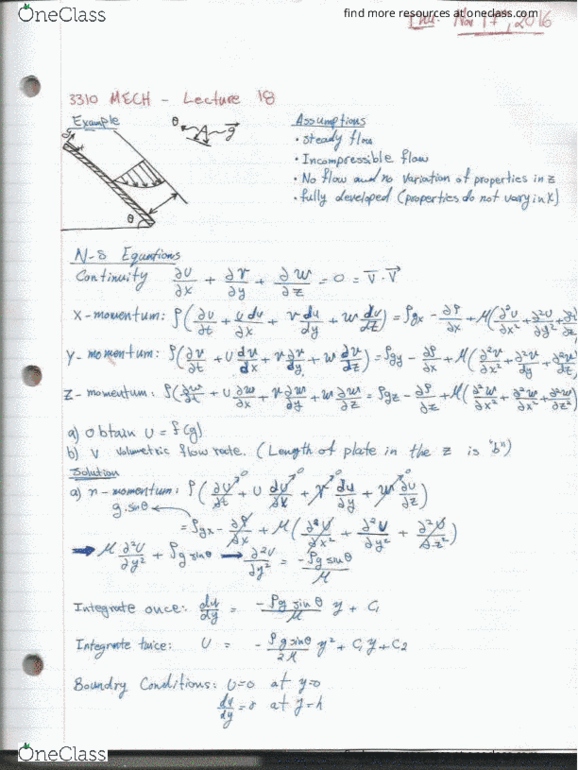 OneClass
find more resources at oneclass.com
Thu. Nov 17, 2016
3310 MECH - Lecture 18
Example
Assumptions
• steady flow
• Incompressible flow
• No flow and no variation of properties in z
• fully developed (properties do not vary in x)
θ
g
θ
N-S Equations
Continuity ∂u/∂x + ∂v/∂y + ∂w/∂z = 0 = ∇·V
X-momentum: ρ(∂u/∂t + u du/∂x + v du/dy + w du/dz) = ρgx - ∂P/∂x + μ(∂²u/∂x² + ∂²u/∂y² +
Y-momentum: ρ(∂v/∂t + u dv/dx + v dv/dy + w dv/dz) = ρgy - ∂P/∂x + μ(∂²v/∂x² + ∂²v/dy + ∂²v/∂z²
Z-momentum: ρ(∂w/∂t + u ∂w/∂x + v ∂w/∂y + w ∂w/∂z) = ρgz - ∂P/∂z + μ(∂²w/∂x² + ∂²w/∂x² + ∂²w/∂z²)
a) Obtain u = f(y)
b) V volumetric flow rate. (Length of plate in the z is "b")
Solution
a) x-momentum: ρ(∂u/∂t + u du/dx + v du/dy + w ∂u/∂z)
g.sinθ
= ρgx - ∂P/∂x + μ(∂²u/∂x² + ∂²u/∂y² + ∂²u/∂z²)
➡ μ ∂²u/∂y² + ρg sinθ ➡ ∂²u/∂y² = -ρg sinθ/μ
Integrate once: du/dy = -ρg sinθ/μ y + C1
Integrate twice: U = -ρg sinθ/2μ y² + C1y + C2
Boundry Conditions: U=0 at y=0
du/dy = 0 at y=h
OneClass
find more resources at oneclass.com